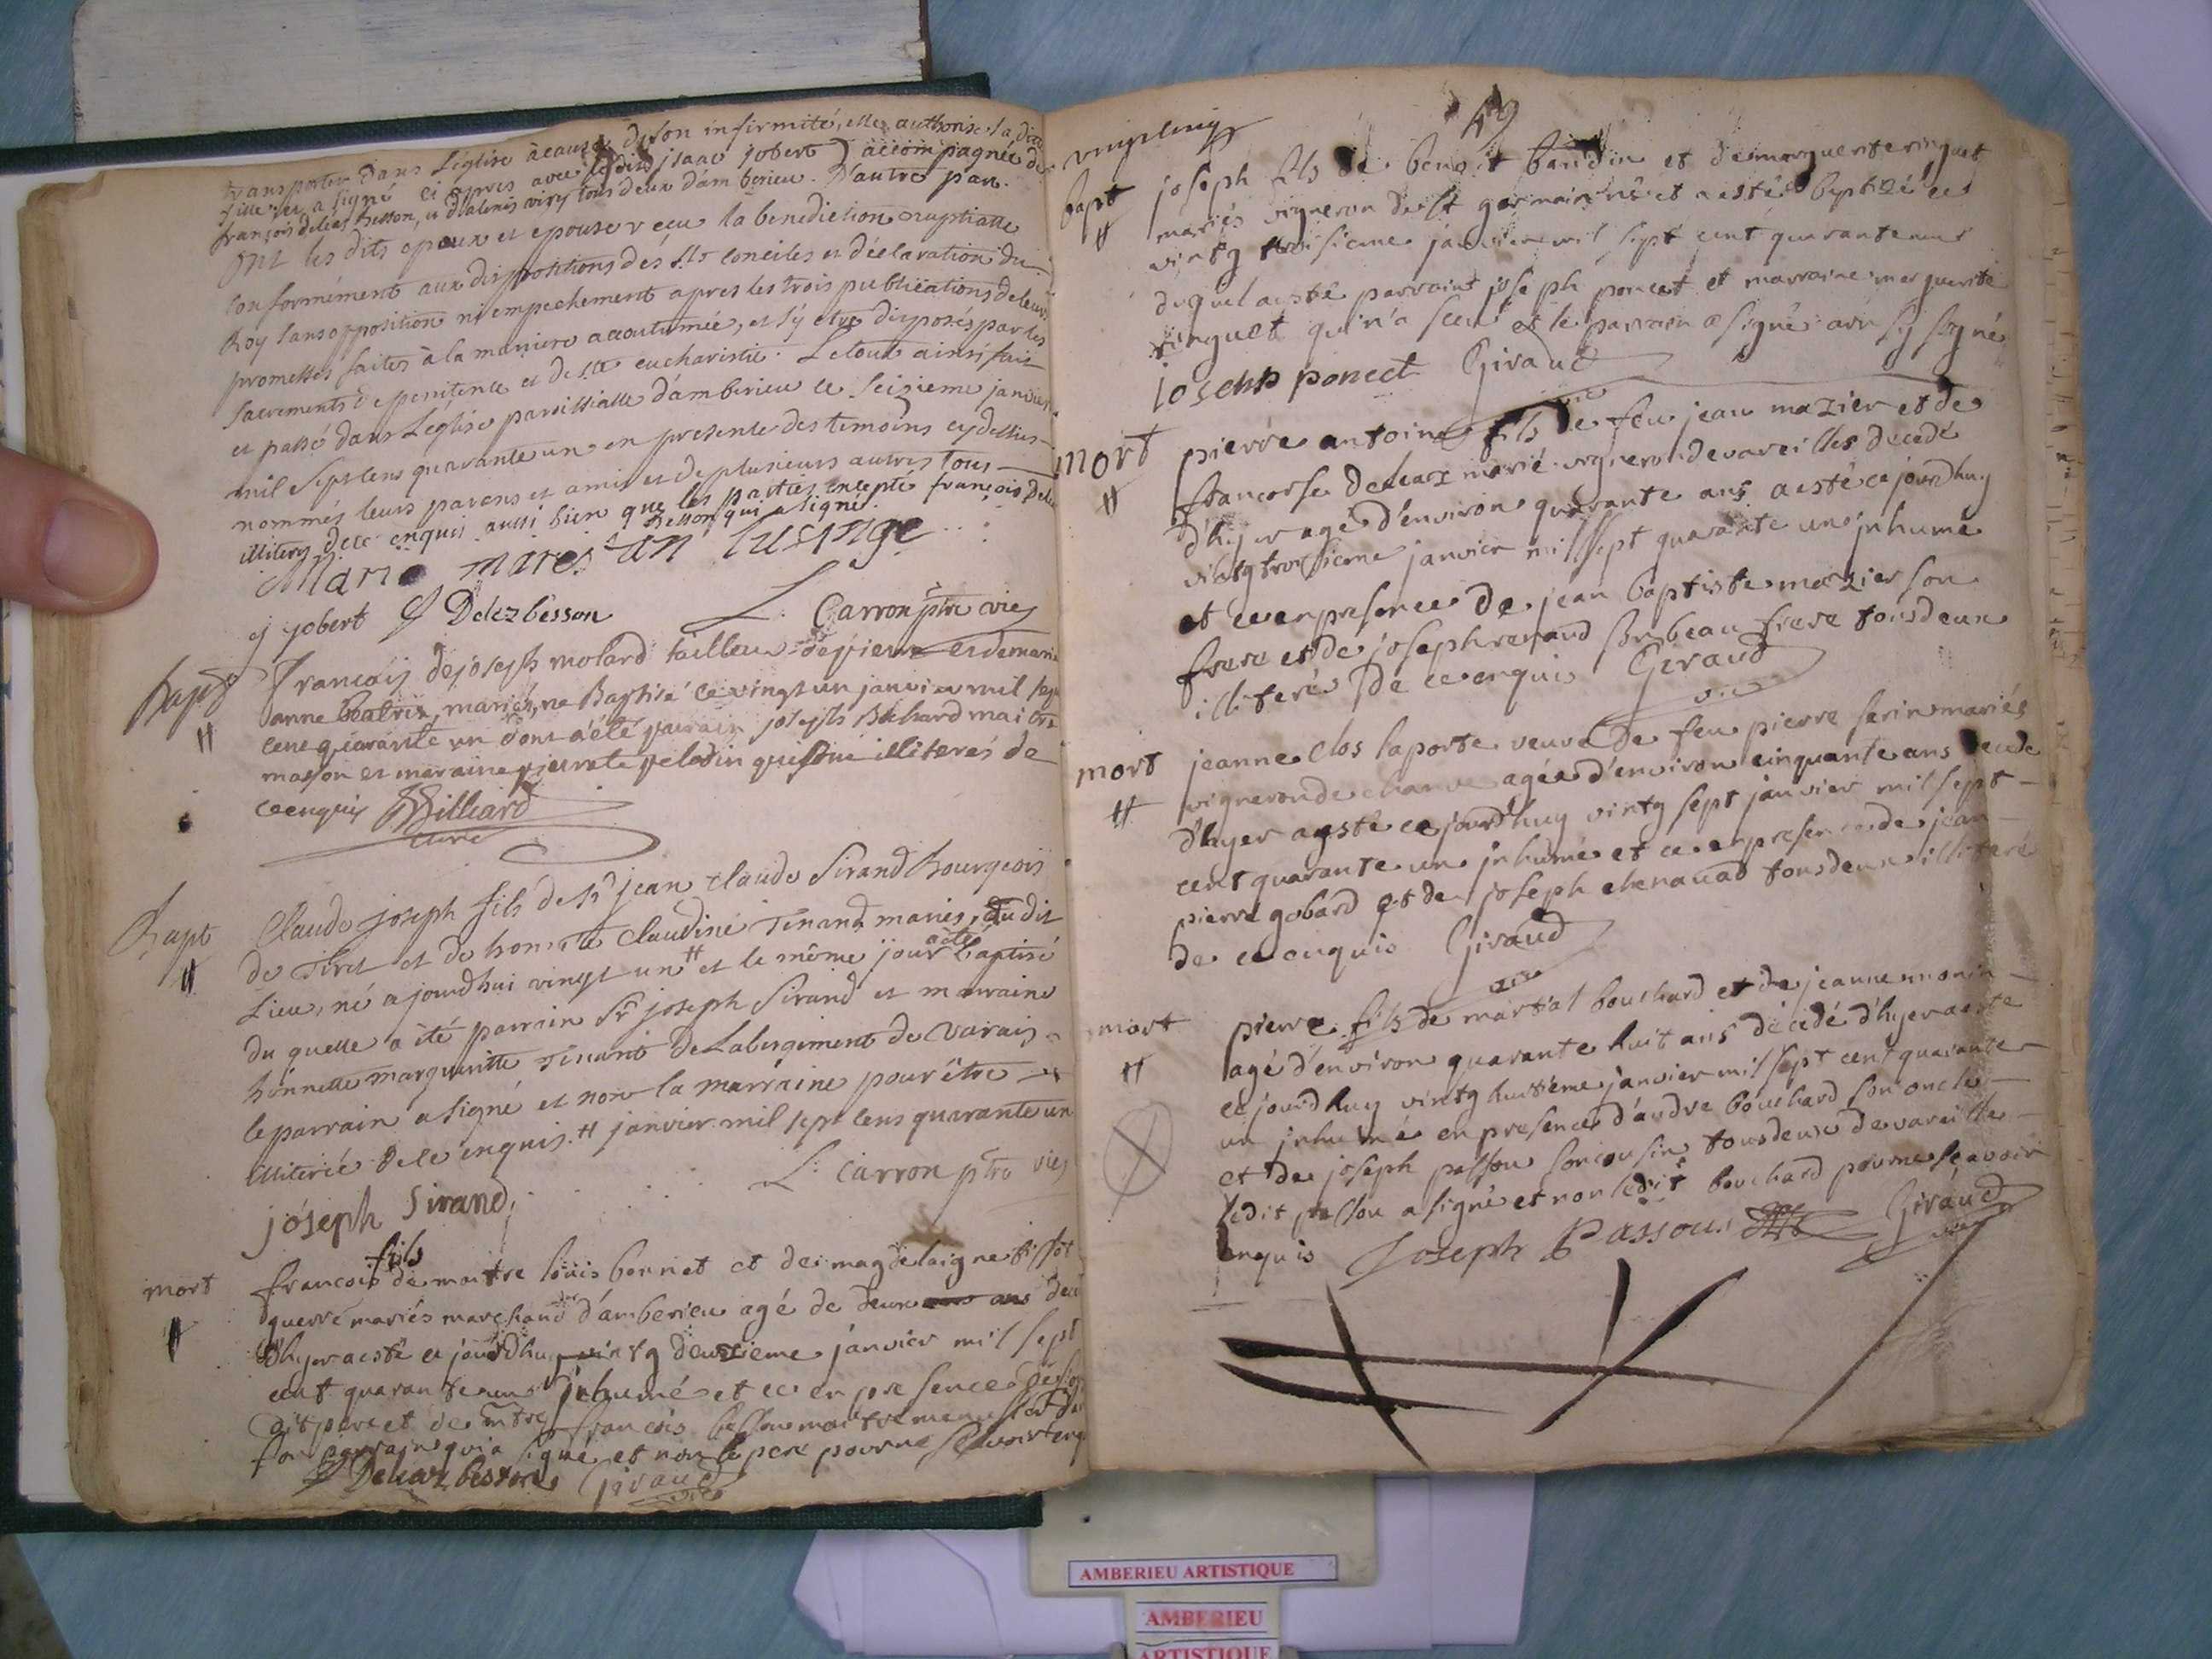 transporter dans L'église à cause de son infirmité, elle authorise la dite
fille et a signé ci apres avec ledit isaac jobert) accompagnée de
françois deléaz besson, et d'alexis viry tous deux d'amberieu. D'autre part.
Ont les dits epoux et epouse reçu la benediction nuptialle
conformément aux dispositions des Sts conciles et déclaration du
Roy sans opposition ni empechement apres les trois publications de leurs
promesses faites à la maniere accoutumée, et s'y etre disposés par les
sacrements de penitence et de ste eucharistie. Le tout ainsi fait
et passé dans L'église paroissialle d'amberieu ce seizieme janvier
mil sept cens quarante un en presence des temoins cy dessus
nommés leurs parens et amis et de plusieurs autres tous
illiterés de ce enquis aussi bien que les parties excepté françois Dele
Besson qui a signé.
Marie
j jobert f Delezbesson L. Carron ptre vic
Bapt
françois de joseph molard tailleur de pierre et de marie
anne beatrix, mariés, né Baptisé ce vingt un janvier mil sept
cent quarante un dont a été parrain joseph Bochard maitre
masson et maraine pierrette peladin qui sont illiterés de
ce enquis Billiard
curé
Bapt
Claude joseph fils de Sr jean claude Sirand Bourgeois
de Tiret et de honete Claudine Tenand mariés, du dit
Lieu, né ajourdhui vingt un # et le même jour a été baptisé
du quelle a été parrain Sr joseph Sirand et marraine
honnette margueritte Tenant de Labergement de Varais
le parrain a signé et non la marraine pour être
illiterée de ce enquis. # janvier mil sept cens quarante un
L. Carron ptre vic
joseph Sirand
mort
fils
francois de maitre louis bonnet et de magdelaigne tissot
querre mariés marchand d'amberieu agé de deux ans
d'hyer a esté ce jourdhuy vintg deuzieme janvier mil sept
cent quarante un inhumé et ce en presence de son
dit pere et de mtre francois besson maitre menusier
son parrain qui a signé et non le pere pour ne sçavoir enq
f Deleaz besson Giraud
vic
49
vingt cinq
bapt
joseph fils de benoit baudin et de marguerite ringuet
mariés vigneron de st germain né et a esté baptizé ce
vintg troisieme janvier mil sept cent quarante un
duquel a esté parraint joseph poncet et marraine marguerite
ringuet qui n'a sceu et le parrain a signé avn sy signé
joseph poncet Giraud
vic
mort
pierre antoine fils de feu jean mazier et de
francoise deleaz marié vigneron de vareilles decedé
d'hyer agé d'environ quarante ans a esté ce jourdhuy
vintg troisieme janvier mil sept quarante un inhumé
et ce en presence de jean baptiste mazier son
frere et de joseph renaud son beau frere tous deux
illiterés de ce enquis Geraud
vic
mort
jeanne clos laporte veuve de feu pierre serin mariés
vigneron de agée d'environ cinquante ans decede
d'hyer a esté ce jourd'huy vintg sept janvier mil sept
cent quarante un inhumé et ce en presence de jean
pierre gobard et de joseph chenavad tous deux illiteré
de ce enquis Giraud
vic
mort
pierre fils de martial bouchard et de jeanne monin
agé d'environ quarante huit ans decedé d'hyer a este
ce jourdhuy vintg huitieme janvier mil sept cent quarante
un inhumé en presence d'andre bouchard son oncle
et de joseph passou son cousin tous deux de vareille
ledit passou a signé et non ledit bouchard pour ne sçavoir
enquis Joseph Passous Giraud
vic
AMBERIEU ARTISTIQUE
AMBERIEU
ARTISTIQUE